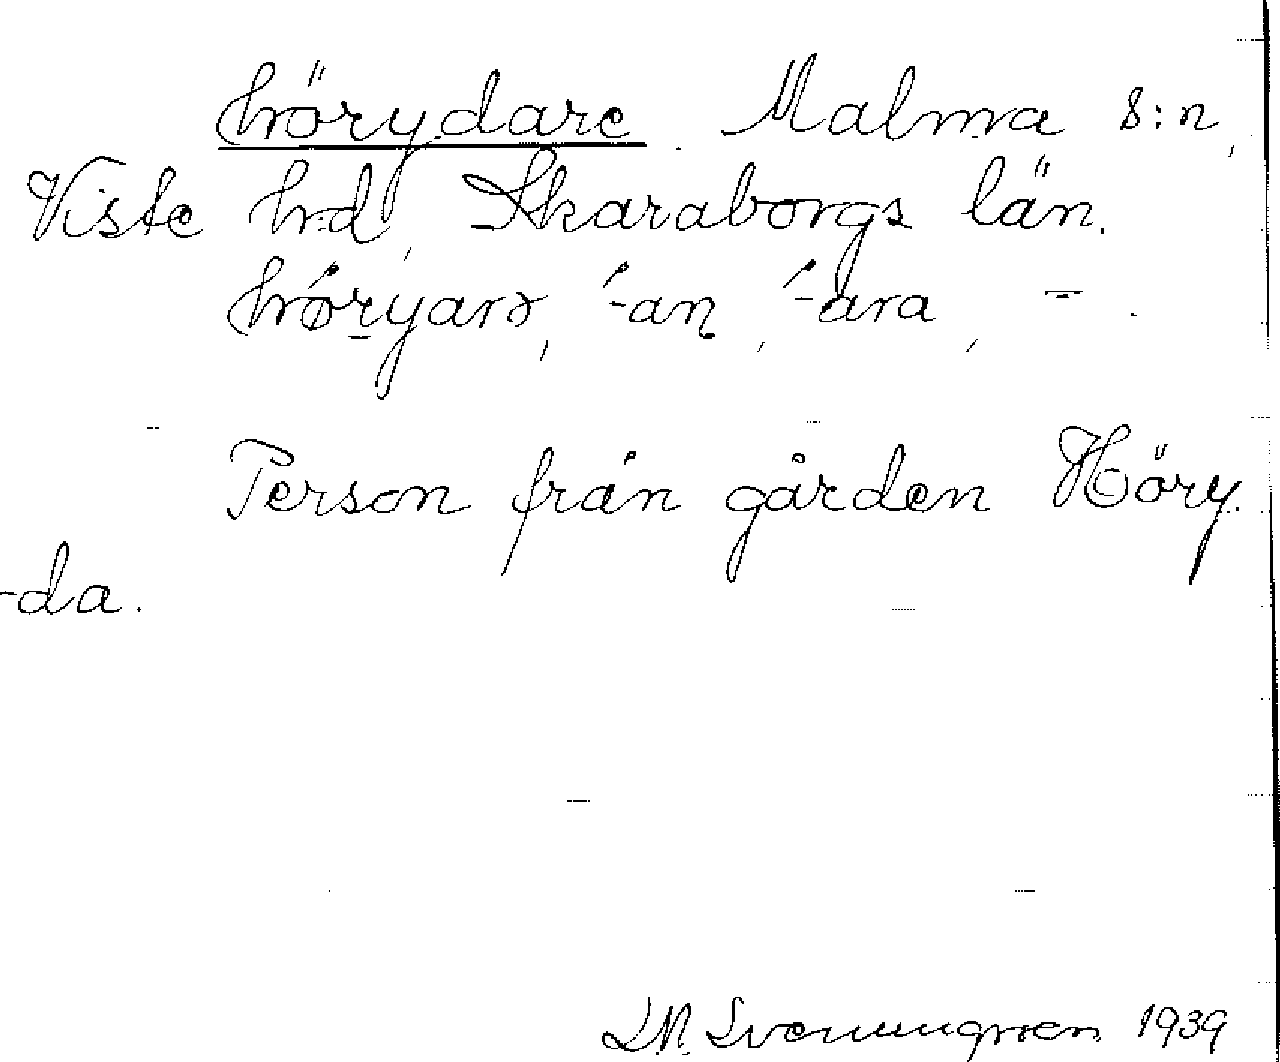 hörydare Malma s:n,
Viste hrd, Skaraborgs län.
hǿryarə, ´-an, ´-ara, –.
Person från gården Höry
-da.
1939